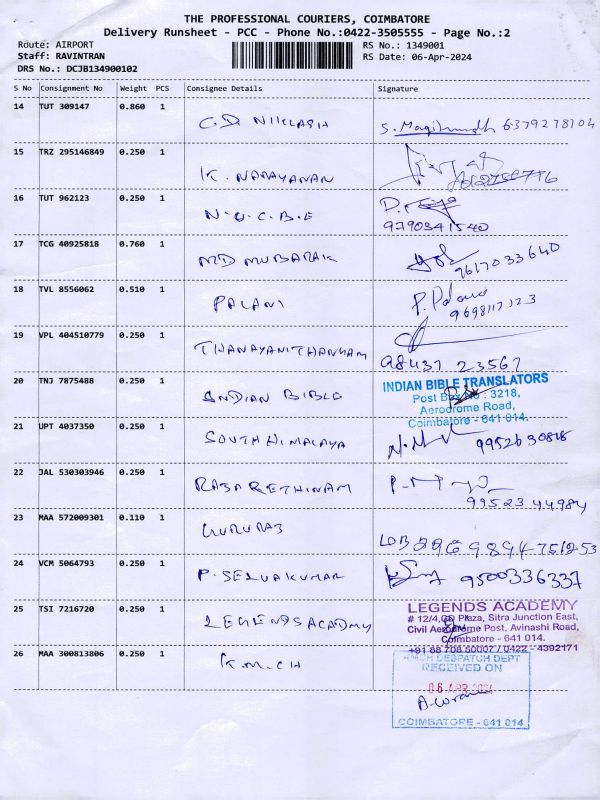 THE PROFESSIONAL COURIERS, COIMBATORE
Delivery Runsheet - PCC - Phone No.:0422-3505555 - Page No.:2
Route: AIRPORT
RS No.: 1349001
Staff: RAVINTRAN
RS Date: 06-Apr-2024
DRS No.: DCJB134900102
S No Consignment No Weight PCS Consignee Details Signature
14 TUT 309147 0.860 1
C.D. NIKLASH S. 6379278104
15 TRZ 295146849 0.250 1
K. NARAYANAN
16 TUT 962123 0.250 1
N.G.C.B.E
9790341540
17 TCG 40925818 0.760 1
MD MUBARAK 9617033640
18 TVL 8556062 0.510 1
PALANI P.
9698117123
19 VPL 404510779 0.250 1
98437 23567
20 TNJ 7875488 0.250 1
INDIAN BIBLE
INDIAN BIBLE TRANSLATORS
Post Box No : 3218,
Aerodrome Road,
Coimbatore - 641 014.
21 UPT 4037350 0.250 1
SOUTH HIMALAYA
22 JAL 530303946 0.250 1
RAJARETHINAM
99523 44984
23 MAA 572009301 0.110 1
GURURAJ
24 VCM 5064793 0.250 1
P. SELVAKUMAR 9500336337
25 TSI 7216720 0.250 1
LEGENDS ACADEMY
LEGENDS ACADEMY
# 12/4,GD Plaza, Sitra Junction East,
Civil Aerodrome Post, Avinashi Road,
Coimbatore - 641 014.
+91 88 708 50007 / 0422 - 4392171
26 MAA 300813806 0.250 1
K.M.CH
DESPATCH DEPT
RECEIVED ON
06 APR 2024
COIMBATORE - 641 014